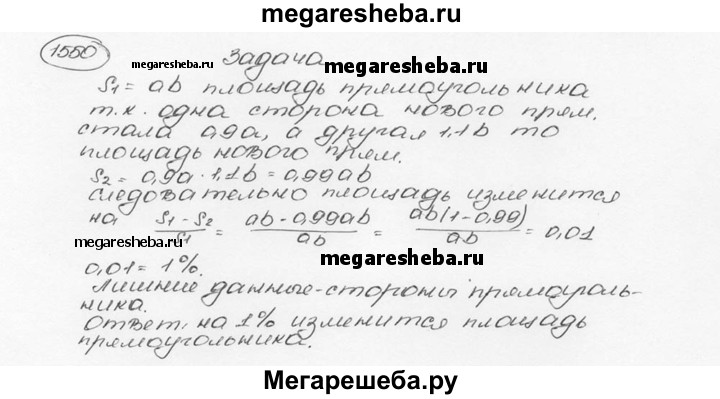 megaresheba.ru
1550
megaresheba.ru
Задача
megaresheba.ru
S1 = ab площадь прямоугольника
т.к. одна сторона нового прям.
стала 0,9a, а другая 1,1b то
площадь нового прям.
S2 = 0,9a · 1,1b = 0,99ab
следовательно площадь изменится
на (S1 - S2)/S1 = (ab - 0,99ab)/ab = ab(1 - 0,99)/ab = 0,01
megaresheba.ru
0,01 = 1%.
megaresheba.ru
Лишние данные - стороны прямоуголь-
ника.
Ответ: на 1% изменится площадь
прямоугольника.
Мегарешеба.ру